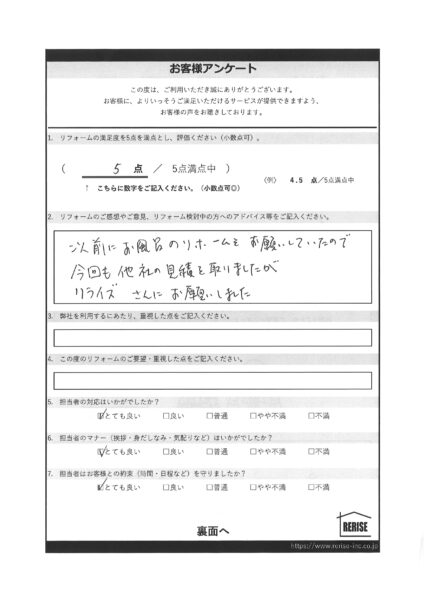 お客様アンケート
この度は、ご利用いただき誠にありがとうございます。
お客様に、よりいっそうご満足いただけるサービスが提供できますよう、
お客様の声をお聴きしております。
1. リフォームの満足度を5点を満点とし、評価ください（小数点可）。
（ 5 点 ／ 5点満点中 ）
〈例〉 4.5 点／5点満点中
↑ こちらに数字をご記入ください。（小数点可◎）
2. リフォームのご感想やご意見、リフォーム検討中の方へのアドバイス等をご記入ください。
以前にお風呂のリホームをお願いしていたので
今回も他社の見積を取りましたが
リライズさんにお願いしました
3. 弊社を利用するにあたり、重視した点をご記入ください。
4. この度のリフォームのご要望・重視した点をご記入ください。
5. 担当者の対応はいかがでしたか？
☑とても良い □良い □普通 □やや不満 □不満
6. 担当者のマナー（挨拶・身だしなみ・気配りなど）はいかがでしたか？
☑とても良い □良い □普通 □やや不満 □不満
7. 担当者はお客様との約束（時間・日程など）を守りましたか？
☑とても良い □良い □普通 □やや不満 □不満
裏面へ
RERISE
https://www.rerise-inc.co.jp